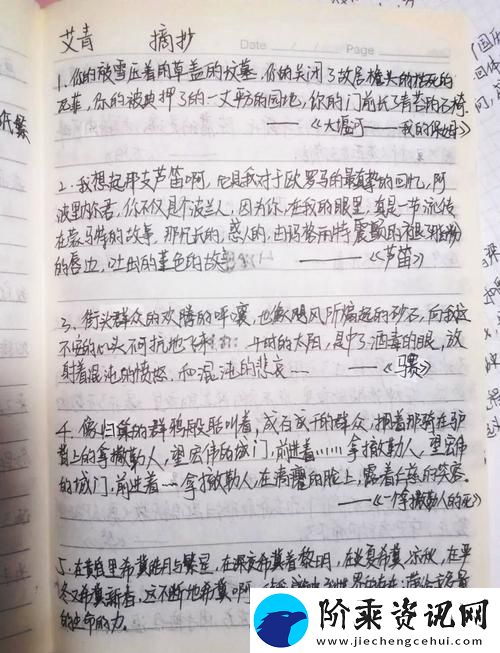 艾青 摘抄
Date / / Page
1. 你的被雪压着的草盖的坟墓，你的关闭了故居檐头的枯死的
瓦菲，你的被典押了的一丈平方的园地，你的门前长了青苔的石椅
——《大堰河——我的保姆》
2. 我想起那支芦笛啊，它是我对于欧罗巴的最真挚的回忆，阿
波里内尔君，你不仅是个波兰人，因为你，在我的眼里，真是一节流传
在蒙马特的故事，那冗长的，惑人的，由玛格丽特震颤的褪
的唇边，吐出的堇色的故事 ——《芦笛》
3. 街头群众的欢腾的呼嚷，也像飓风所煽起的砂石，向我这
不安的心头不可抗地飞来 午时的太阳，是中了酒毒的眼，放
射着混沌的愤怒 和混沌的悲哀… ——
4. 像归巢的群鸦般聒叫着，成百成千的群众，拥着那骑在驴
背上的拿撒勒人，望宏伟的城门，前进着……拿撒勒人，望宏伟
的城门，前进着…拿撒勒人，在清癯的脸上，露着仁慈的笑容。
——《一个拿撒勒人的死》
5. 在黄昏里希冀皓月与繁星，在深夜希冀着黎明，在炎夏希冀凉秋，在严
冬又希冀新春，这不断地希冀啊
的生命的力
阶乘资讯网
www.jiechengcehui.com